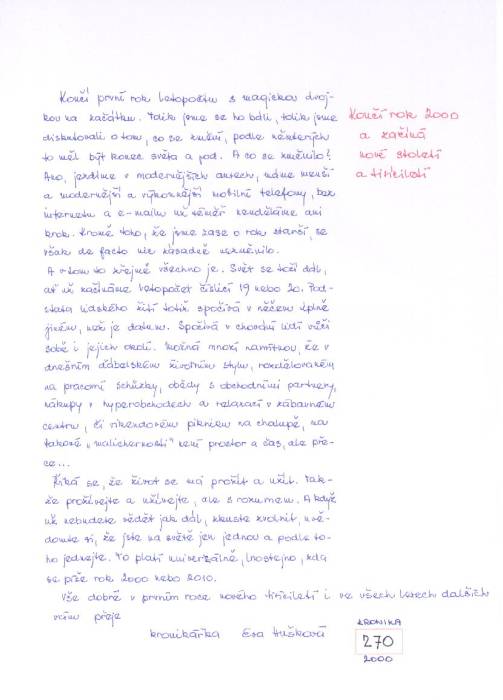 Končí první rok letopočtu s magickou dvoj-
kou na začátku. Tolik jsme se ho báli, tolik jsme
diskutovali o tom, co se změní, podle některých
to měl být konec světa a pod. A co se změnilo?
Ano, jezdíme v modernějších autech, máme menší
a modernější a výkonnější mobilní telefony, bez
internetu a e-mailu už téměř neuděláme ani
krok. Kromě toho, že jsme zase o rok starší, se
však de facto nic zásadně nezměnilo.
A v tom to zřejmě všechno je. Svět se točí dál,
ať už začínáme letopočet číslicí 19 nebo 20. Pod-
stata lidského žití totiž spočívá v něčem úplně
jiném, než je datum. Spočívá v chování lidí vůči
sobě i jejich okolí. Možná mnozí namítnou, že v
dnešním ďábelském životním stylu, rozdělovaném
na pracovní schůzky, obědy s obchodními partnery,
nákupy v hyperobchodech a relaxací v zábavném
centru, či víkendovém pikniku na chalupě, na
takové "malichernosti" není prostor a čas, ale pře-
ce...
Říká se, že život se má prožít a užít. Tak-
že prožívejte a užívejte, ale s rozumem. A když
už nebudete vědět jak dál, zkuste zvolnit, uvě-
domte si, že jste na světě jen jednou a podle to-
ho jednejte. To platí univerzálně, lhostejno, zda
se píše rok 2000 nebo 2010.
Vše dobré v prvním roce nového tisíciletí i ve všech letech dalších
vám přeje
kronikářka Eva Hušková
Končí rok 2000
a začíná
nové století
a tisíciletí
KRONIKA
270
2000